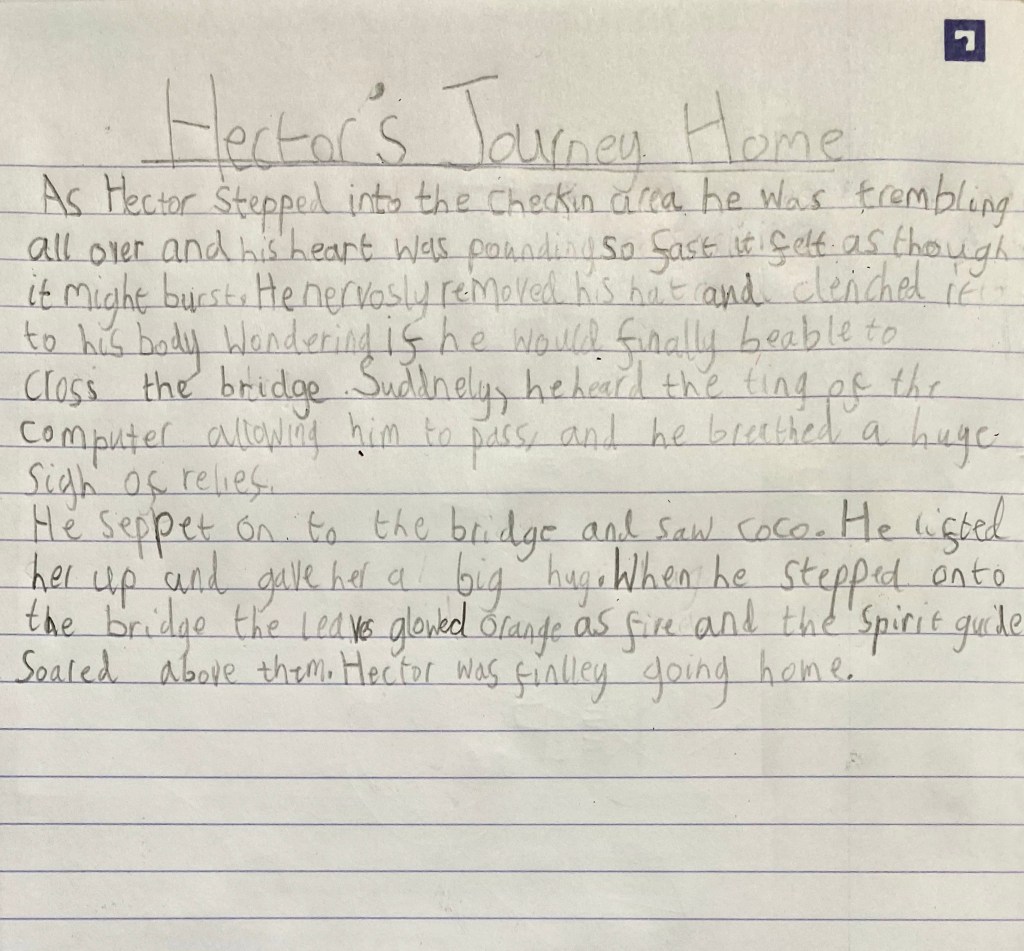 Hector's Journey Home
As Hector stepped into the checkin area he was trembling
all over and his heart was pounding so fast it felt as though
it might burst. He nervosly removed his hat and clenched it
to his body wondering if he would finally beable to
cross the bridge. Suddnely, he heard the ting of the
computer allowing him to pass, and he breathed a huge
sigh of relief.
He seppet on to the bridge and saw coco. He lifted
her up and gave her a big hug. When he stepped onto
the bridge the leaves glowed orange as fire and the spirit guide
soared above them. Hector was finlley going home.